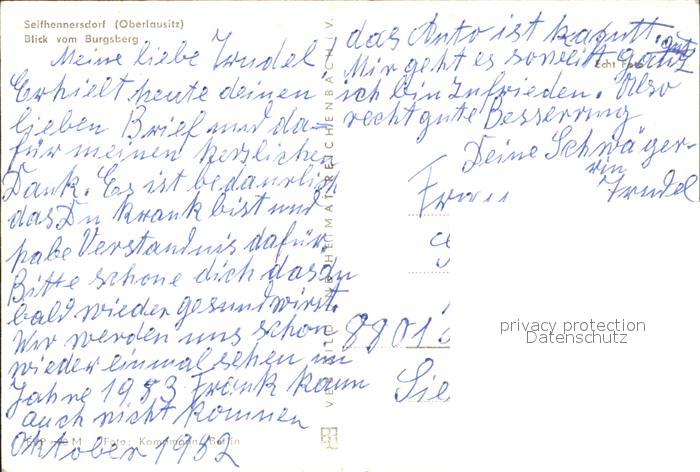 Seifhennersdorf (Oberlausitz)
Blick vom Burgsberg
Meine liebe Trudel
Erhielt heute deinen
lieben Brief und da-
für meinen herzlichen
Dank. Es ist bedaurlich
das Du krank bist und
habe Verständnis dafür.
Bitte schone dich das du
bald wieder gesund wirst.
Wir werden uns schon
wieder einmal sehen im
Jahre 1983 Frank kann
auch nicht kommen
Oktober 1982
das Auto ist kaputt.
Mir geht es soweit ganz gut
ich bin zufrieden. Also
recht gute Besserung
Deine Schwäger-
rin
Trudel
Echt Foto
VERLAG HEIMAT REICHENBACH i. V.
Frau
8801
Sie
privacy protection
Datenschutz
M Foto: Kampmann, Berlin